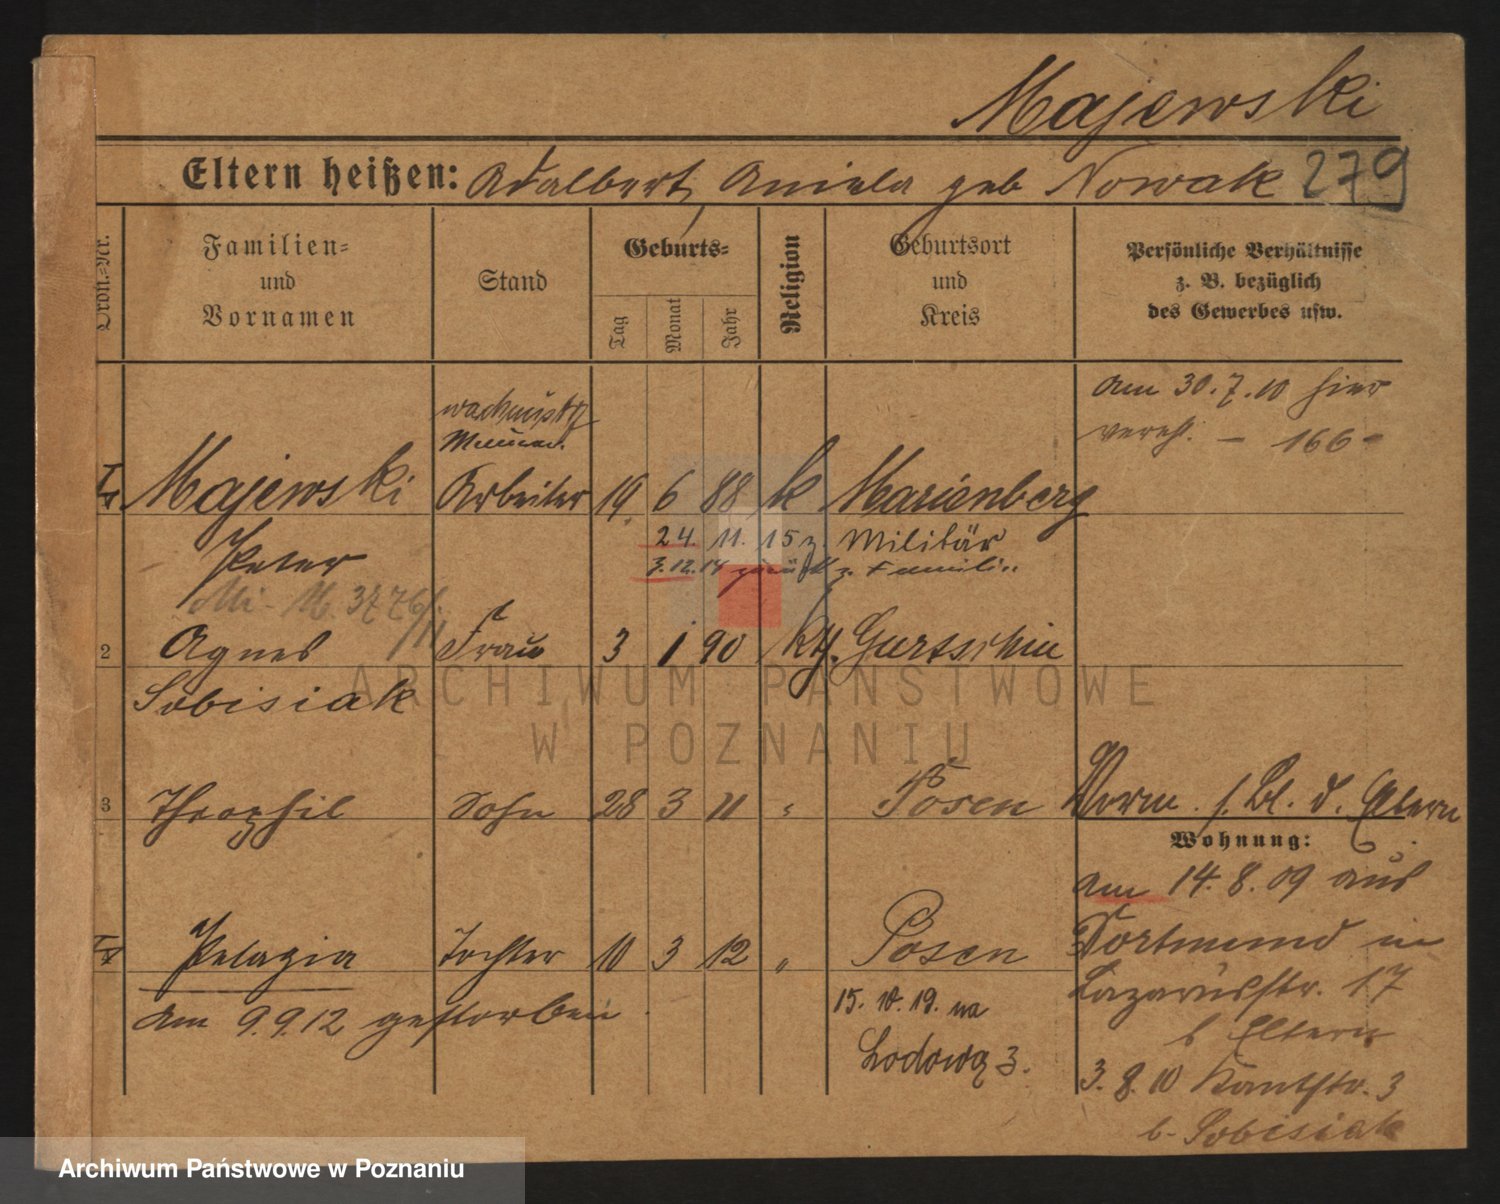 Majewski
Eltern heißen: Adalbert, Aniela geb Nowak 279
Ordn.=Nr.
Familien=
und
Vornamen
Stand
Geburts=
Tag
Monat
Jahr
Religion
Geburtsort
und
Kreis
Persönliche Verhältnisse
z. B. bezüglich
des Gewerbes usw.
am 30.7.10 hier
vereh. — 166
Majewski Arbeiter 19 6 88 k Marienberg
Peter
24. 11. 15 z. Militär
3.12.14 zurück z. Familie
3776
2 Agnes Frau 3 1 90 kth. Gurtschin
Sobisiak
3 Theophil Sohn 28 3 11 " Posen
Vorm. s. Bl. d. Eltern
Wohnung:
am 14.8.09 aus
Dortmund in
Lazarusstr. 17
b Eltern
3.8.10 Kantstr. 3
b. Sobisiak
Pelagia Tochter 10 3 12 " Posen
am 9.9.12 gestorben
15. 10. 19. na
Lodową 3.
ARCHIWUM PAŃSTWOWE
W POZNANIU
Archiwum Państwowe w Poznaniu